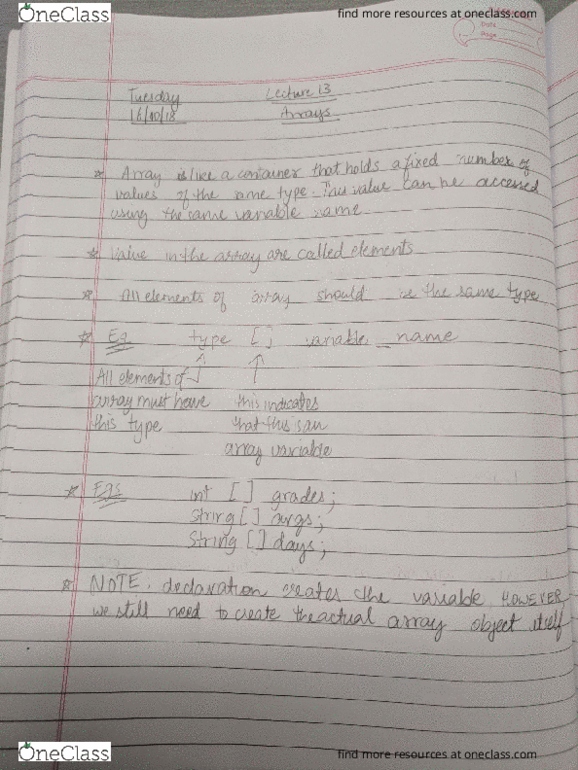 OneClass
find more resources at oneclass.com
Date
Page
Tuesday Lecture 13
16/10/18 Arrays
* Array is like a container that holds a fixed number of
values of the same type. value can be accessed
using the same variable name
* Value in the array are called elements
* All elements of array should be the same type
* Eg type [ ] variable_name
All elements of
array must have this indicates
this type that this is an
array variable
* Egs int [ ] grades;
String [ ] args;
String [ ] days;
* NOTE. declaration creates the variable. HOWEVER
we still need to create the actual array object itself
OneClass
find more resources at oneclass.com